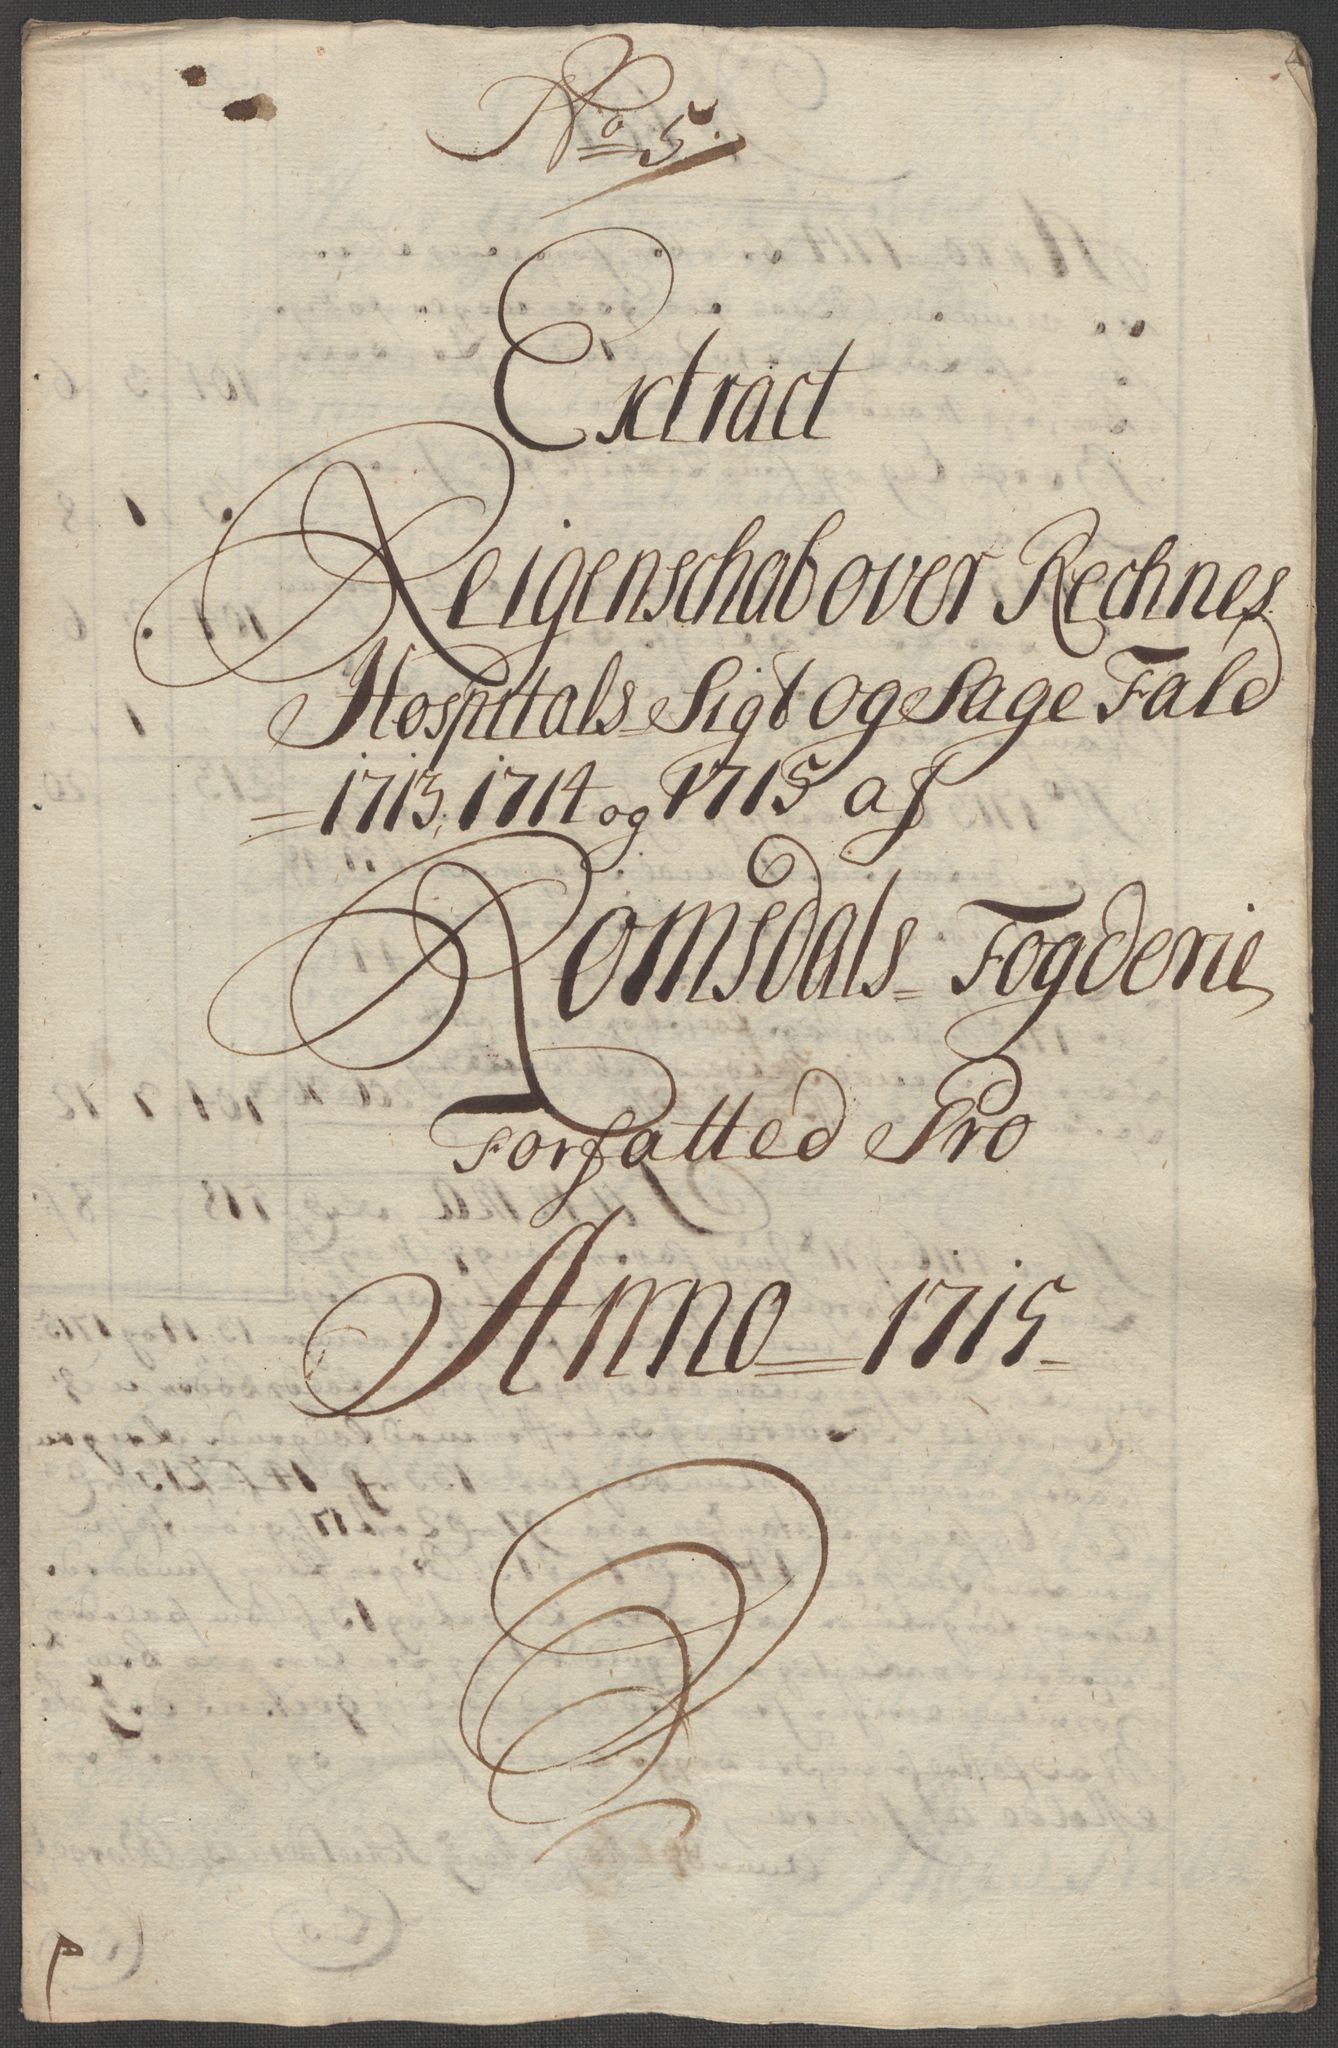 No 5.
Extract
Reigenschab over Rechnes
Hospitals Sigt og Sage Fald
1713, 1714 og 1715 af
Romsdals Fogderie
Forfatted Pro
Anno 1715